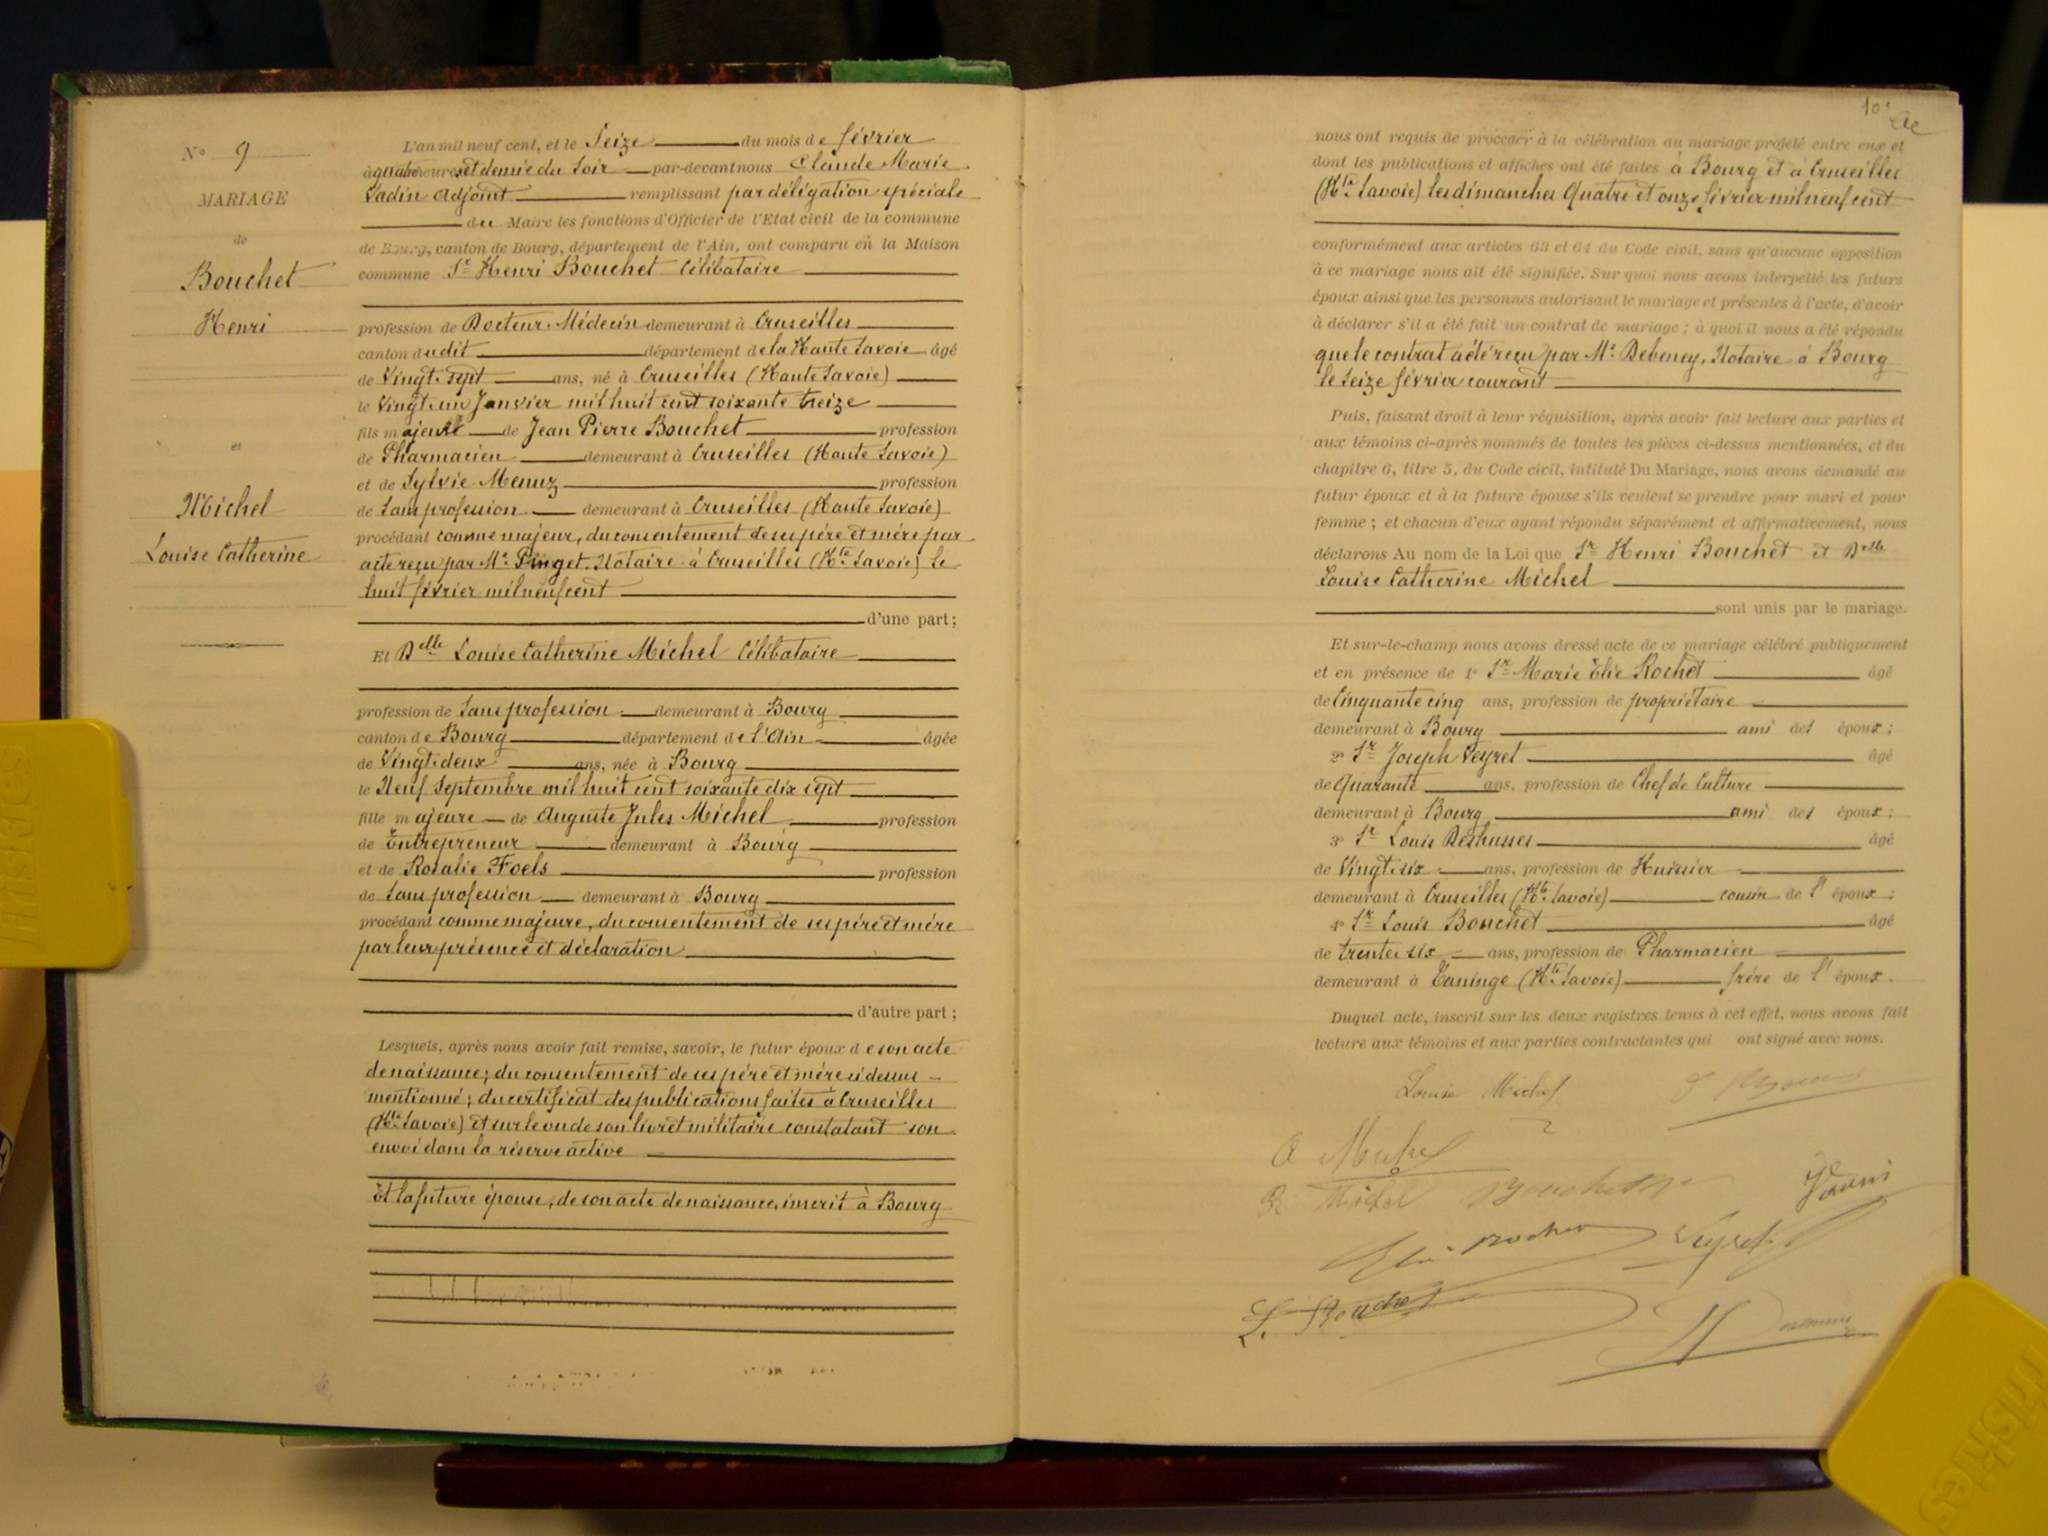 N° 9
MARIAGE
de
Bouchet
Henri
et
Michel
Louise Catherine
L'an mil neuf cent, et le Seize du mois de février
à quatre heures et demie du Soir par-devant nous Claude Marie
Vadin Adjoint remplissant par délégation spéciale
du Maire les fonctions d'Officier de l'Etat civil de la commune
de Bourg, canton de Bourg, département de l'Ain, ont comparu en la Maison
commune Sr Henri Bouchet Célibataire
profession de Docteur-Médecin demeurant à Cruseilles
canton dudit département de la Haute Savoie âgé
de Vingt-sept ans, né à Cruseilles (Haute Savoie)
le Vingt-un Janvier mil huit cent soixante treize
fils majeur de Jean Pierre Bouchet profession
de Pharmacien demeurant à Cruseilles (Haute Savoie)
et de Sylvie Menuz profession
de Sans profession demeurant à Cruseilles (Haute Savoie)
procédant comme majeur, du consentement de ses père et mère par
acte reçu par Me Pinget, Notaire à Cruseilles (Hte Savoie) le
huit février mil neuf cent
d'une part;
Et Delle Louise Catherine Michel Célibataire
profession de Sans profession demeurant à Bourg
canton de Bourg département de l'Ain âgée
de Vingt-deux ans, née à Bourg
le Neuf Septembre mil huit cent soixante dix sept
fille majeure de Auguste Jules Michel profession
de Entrepreneur demeurant à Bourg
et de Rosalie Foels profession
de Sans profession demeurant à Bourg
procédant comme majeure, du consentement de ses père et mère
par leur présence et déclaration
d'autre part;
Lesquels, après nous avoir fait remise, savoir, le futur époux de son acte
de naissance; du consentement de ses père et mère ci-dessus
mentionné; du certificat des publications faites à Cruseilles
(Hte Savoie) et sur le vu de son livret militaire constatant son
envoi dans la réserve active
Et la future épouse, de son acte de naissance, inscrit à Bourg
10e
nous ont requis de procéder à la célébration du mariage projeté entre eux et
dont les publications et affiches ont été faites à Bourg et à Cruseilles
(Hte Savoie) les dimanches Quatre et onze février mil neuf cent
conformément aux articles 63 et 64 du Code civil, sans qu'aucune opposition
à ce mariage nous ait été signifiée. Sur quoi nous avons interpellé les futurs
époux ainsi que les personnes autorisant le mariage et présentes à l'acte, d'avoir
à déclarer s'il a été fait un contrat de mariage; à quoi il nous a été répondu
que le contrat a été reçu par Me Debeney, Notaire à Bourg
le Seize février courant
Puis, faisant droit à leur réquisition, après avoir fait lecture aux parties et
aux témoins ci-après nommés de toutes les pièces ci-dessus mentionnées, et du
chapitre 6, titre 5, du Code civil, intitulé Du Mariage, nous avons demandé au
futur époux et à la future épouse s'ils veulent se prendre pour mari et pour
femme; et chacun d'eux ayant répondu séparément et affirmativement, nous
déclarons Au nom de la Loi que Sr Henri Bouchet et Delle
Louise Catherine Michel
sont unis par le mariage.
Et sur-le-champ nous avons dressé acte de ce mariage célébré publiquement
et en présence de 1° Sr Marie Elie Rochet âgé
de Cinquante cinq ans, profession de propriétaire
demeurant à Bourg ami des époux;
2° Sr Joseph Veyret âgé
de Quarante ans, profession de Chef de Culture
demeurant à Bourg ami des époux;
3° Sr Louis Deshusses âgé
de Vingt-six ans, profession de Huissier
demeurant à Cruseilles (Hte Savoie) cousin de l'époux;
4° Sr Louis Bouchet âgé
de trente-six ans, profession de Pharmacien
demeurant à Taninge (Hte Savoie) frère de l'époux.
Duquel acte, inscrit sur les deux registres tenus à cet effet, nous avons fait
lecture aux témoins et aux parties contractantes qui ont signé avec nous.
Louise Michel
A Michel
R Michel
Elie Rochet Veyret
L. Bouchet